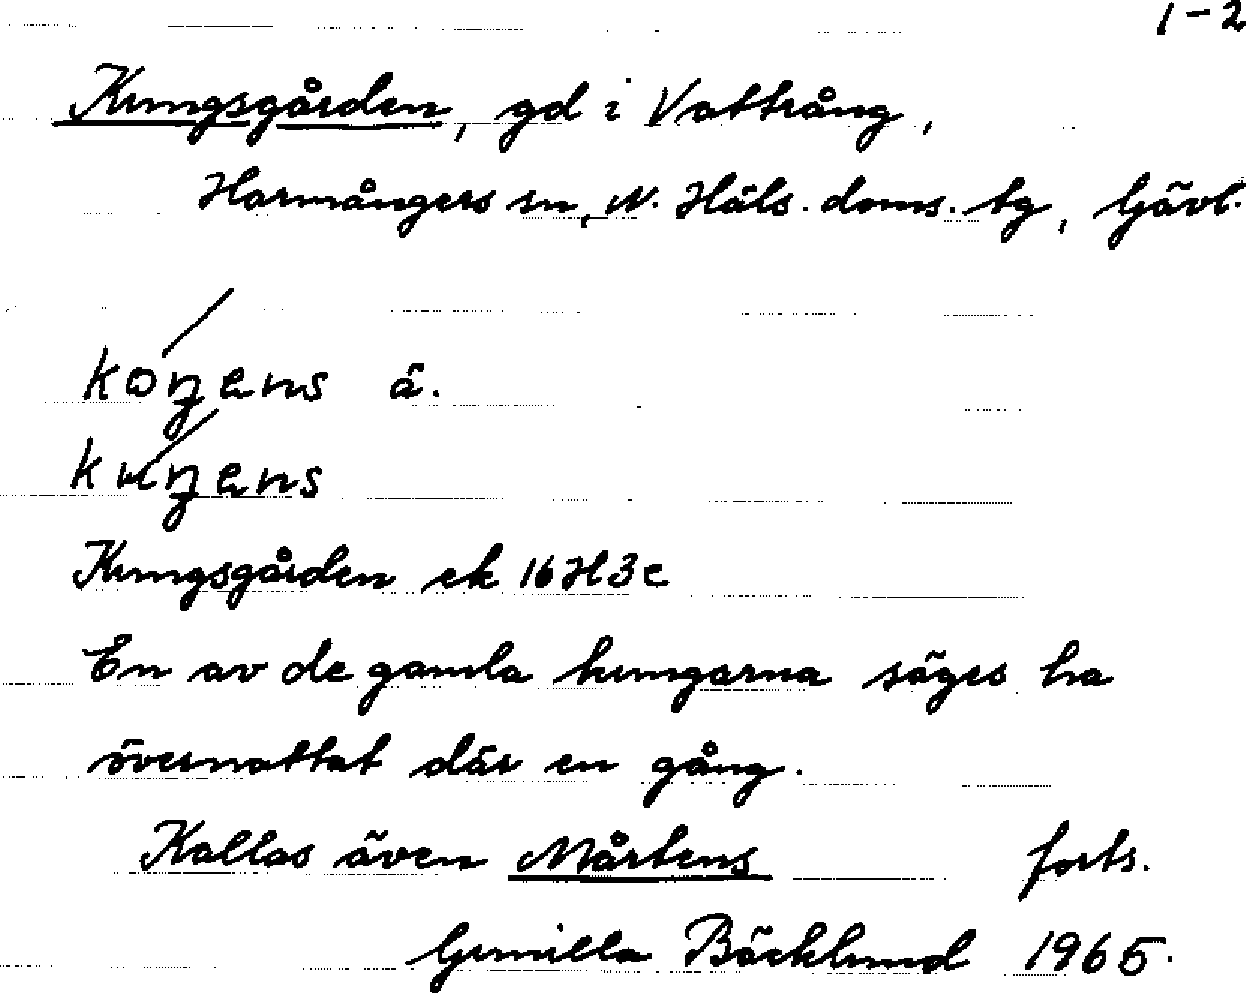 1-2
Kungsgården, gd i Vattrång,
Harmångers sn, N. Häls. doms. tg, Gävl.
kóŋens ä.
kúŋens
Kungsgården ek 16H3c
En av de gamla kungarna säges ha
övernattat där en gång.
Kallas även Mårtens forts.
Gunilla Bäcklund 1965.